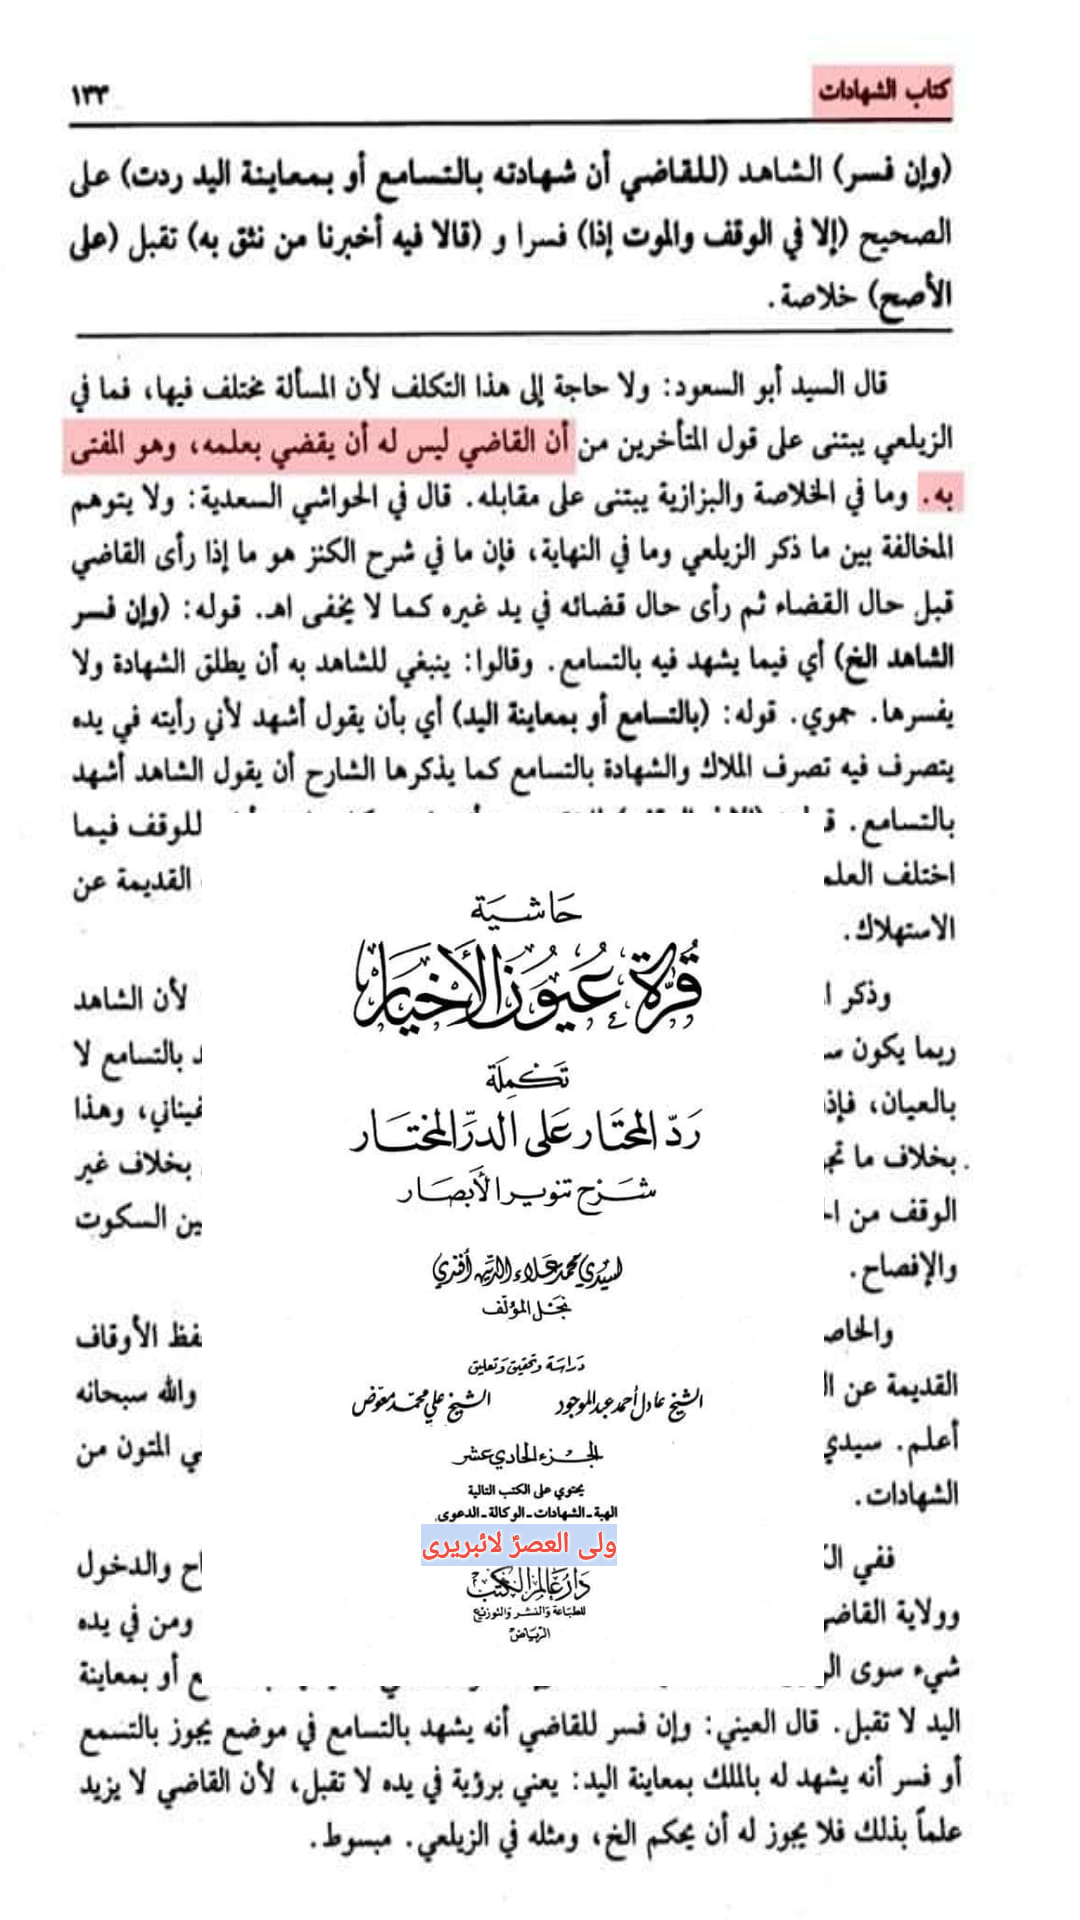 كتاب الشهادات ١٣٣
(وإن فسر) الشاهد (للقاضي أن شهادته بالتسامع أو بمعاينة اليد ردت) على
الصحيح (إلا في الوقف والموت إذا) فسرا و (قالا فيه أخبرنا من نثق به) تقبل (على
الأصح) خلاصة.
قال السيد أبو السعود: ولا حاجة إلى هذا التكلف لأن المسألة مختلف فيها، فما في
الزيلعي يبتنى على قول المتأخرين من أن القاضي ليس له أن يقضي بعلمه، وهو المفتى
به. وما في الخلاصة والبزازية يبتنى على مقابله. قال في الحواشي السعدية: ولا يتوهم
المخالفة بين ما ذكر الزيلعي وما في النهاية، فإن ما في شرح الكنز هو ما إذا رأى القاضي
قبل حال القضاء ثم رأى حال قضائه في يد غيره كما لا يخفى اهـ. قوله: (وإن فسر
الشاهد الخ) أي فيما يشهد فيه بالتسامع. وقالوا: ينبغي للشاهد به أن يطلق الشهادة ولا
يفسرها. حموي. قوله: (بالتسامع أو بمعاينة اليد) أي بأن يقول أشهد لأني رأيته في يده
يتصرف فيه تصرف الملاك والشهادة بالتسامع كما يذكرها الشارح أن يقول الشاهد أشهد
بالتسامع. للوقف فيما
اختلف العلم القديمة عن
الاستهلاك.
وذكر لأن الشاهد
ربما يكون بالتسامع لا
بالعيان، وهذا
بخلاف ما بخلاف غير
الوقف من السكوت
والإفصاح.
الأوقاف
القديمة عن والله سبحانه
أعلم. سيدي المتون من
الشهادات.
ففي والدخول
وولاية ومن في يده
شيء سوى أو بمعاينة
اليد لا تقبل. قال العيني: وإن فسر للقاضي أنه يشهد بالتسامع في موضع يجوز بالتسمع
أو فسر أنه يشهد له بالملك بمعاينة اليد: يعني برؤية في يده لا تقبل، لأن القاضي لا يزيد
علماً بذلك فلا يجوز له أن يحكم الخ، ومثله في الزيلعي. مبسوط.
حاشية
قرة عيون الأخيار
تكملة
رد المحتار على الدر المختار
شرح تنوير الأبصار
لسيدي محمد علاء الدين أفندي
نجل المؤلف
دراسة وتحقيق وتعليق
الشيخ عادل أحمد عبد الموجود الشيخ علي محمد معوض
الجزء الحادي عشر
يحتوي على الكتب التالية
الهبة ـ الشهادات ـ الوكالة ـ الدعوى
ولی العصرؑ لائبریری
دار عالم الكتب
للطباعة والنشر والتوزيع
الرياض